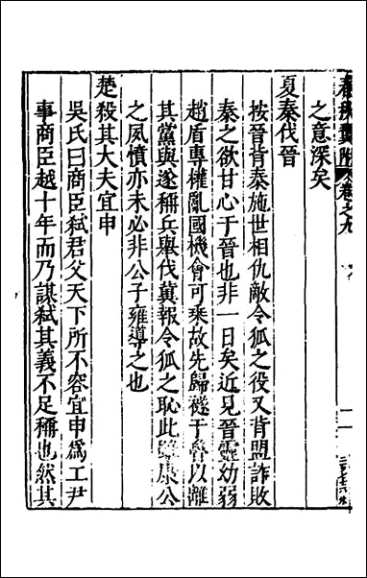 春秋實附 卷之九
之意深矣
夏秦伐晉
按晉背秦施世相仇敵令狐之役又背盟詐敗
秦之欲甘心于晉也非一日矣近見晉靈幼弱
趙盾專權亂國機會可乗故先歸襚于魯以離
其黨與遂稱兵舉伐冀報令狐之恥此雖康公
之夙憤亦未必非公子雍導之也
楚殺其大夫宜申
吳氏曰商臣弑君父天下所不容宜申爲工尹
事商臣越十年而乃謀弑其義不足稱也然其